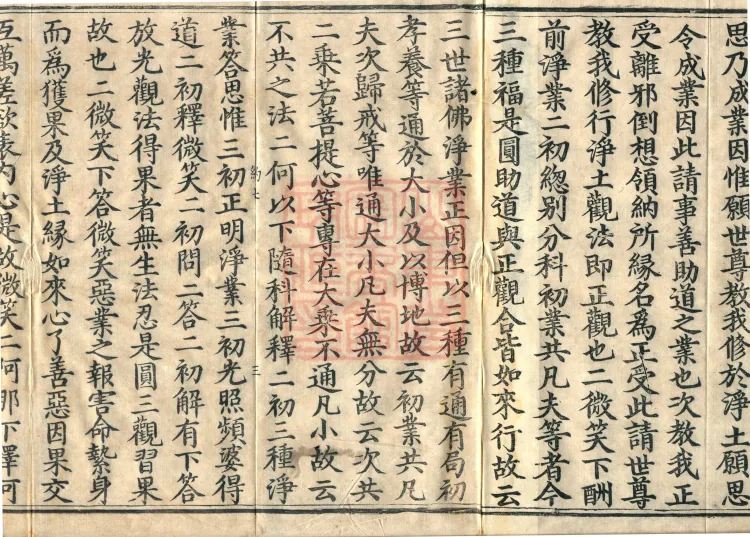 思乃成業因惟願世尊教我修於淨土願思
令成業因此請事善助道之業也次教我正
受離邪倒想領納所縁名爲正受此請世尊
教我修行淨土觀法即正觀也二微笑下酬
前淨業二初緫别分科初業共凡夫等者今
三種福是圓助道與正觀合皆如來行故云
三世諸佛淨業正因但以三種有通有局初
孝養等通於大小及以博地故云初業共凡
夫次歸戒等唯通大小凡夫無分故云次共
二乗若菩提心等專在大乗不通凡小故云
不共之法二何以下隨科解釋二初三種淨
約七
三
業答思惟三初正明淨業三初光照頻婆得
道二初釋微笑二初問二答二初解有下答
放光觀法得果者無生法忍是圓三觀習果
故也二微笑下答微笑惡業之報害命縶身
而爲獲果及淨土縁如來心了善惡因果交
互萬差欲表内心是故微笑二何那下釋可